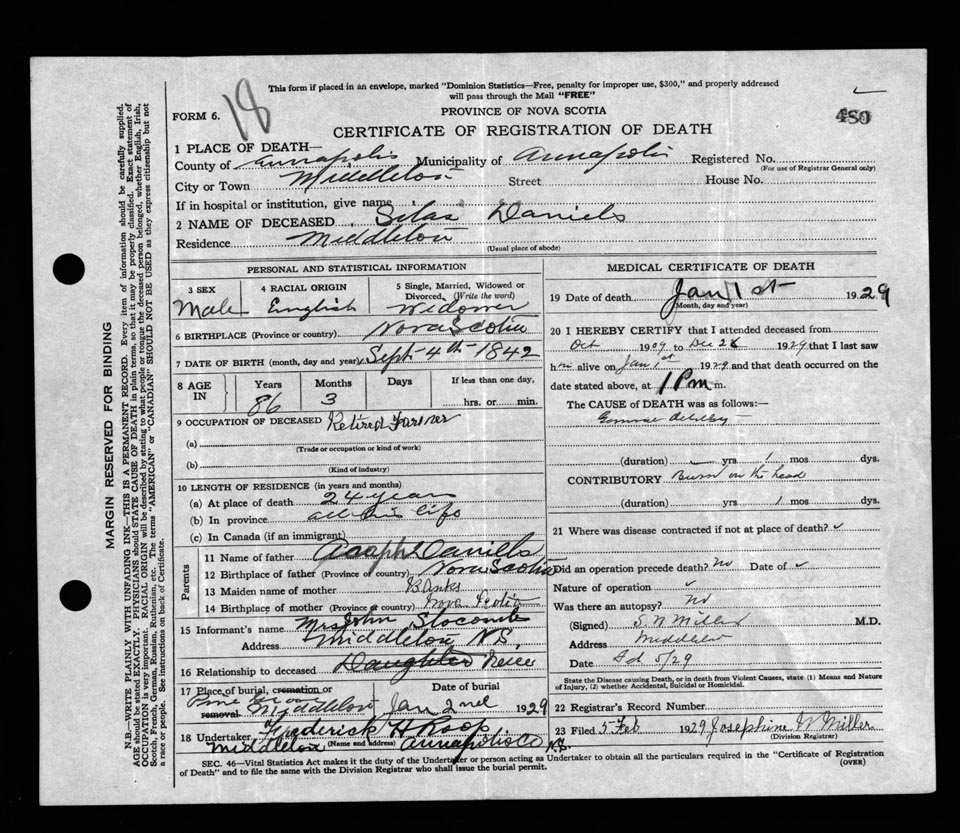 This form if placed in an envelope, marked "Dominion Statistics—Free, penalty for improper use, $300," and properly addressed
will pass through the Mail "FREE"
18
480
FORM 6.
PROVINCE OF NOVA SCOTIA
CERTIFICATE OF REGISTRATION OF DEATH
1 PLACE OF DEATH—
County of Annapolis Municipality of Annapolis Registered No.
(For use of Registrar General only)
City or Town Middleton Street House No.
If in hospital or institution, give name
2 NAME OF DECEASED Silas Daniels
Residence Middleton
(Usual place of abode)
PERSONAL AND STATISTICAL INFORMATION
3 SEX 4 RACIAL ORIGIN 5 Single, Married, Widowed or Divorced, (Write the word)
Male English Widower
6 BIRTHPLACE (Province or country) Nova Scotia
7 DATE OF BIRTH (month, day and year) Sept 4th 1842
8 AGE IN Years Months Days If less than one day,
86 3 hrs. or min.
9 OCCUPATION OF DECEASED Retired Farmer
(a)
(Trade or occupation or kind of work)
(b)
(Kind of industry)
10 LENGTH OF RESIDENCE (in years and months)
(a) At place of death 24 years
(b) In province all his life
(c) In Canada (if an immigrant)
Parents
11 Name of father Daniells
12 Birthplace of father (Province or country) Nova Scotia
13 Maiden name of mother Banks
14 Birthplace of mother (Province or country) Nova Scotia
15 Informant's name Mrs John Slocomb
Address Middleton N.S.
16 Relationship to deceased Daughter Neice
17 Place of burial, cremation or removal Date of burial
Pine Grove Middleton Jan 2nd 1929
18 Undertaker Frederick H Roop
(Name and address)
Middleton Annapolis Co N.S.
MEDICAL CERTIFICATE OF DEATH
19 Date of death Jan 1st 1929
(Month, day and year)
20 I HEREBY CERTIFY that I attended deceased from
Oct 1909 to Dec 28 1929 that I last saw
him alive on Jan 1st 1929 and that death occurred on the
date stated above, at 1 Pm m.
The CAUSE of DEATH was as follows:—
(duration) yrs 1 mos dys.
CONTRIBUTORY Burn on the head
(duration) yrs 1 mos dys.
21 Where was disease contracted if not at place of death?
Did an operation precede death? No Date of
Nature of operation
Was there an autopsy? No
(Signed) S. N Miller M.D.
Address Middleton
Date Fd 5/29
State the Disease causing Death, or in death from Violent Causes, state (1) Means and Nature
of Injury, (2) whether Accidental, Suicidal or Homicidal.
22 Registrar's Record Number
23 Filed 5 Feb 1929 Josephine W Miller
(Division Registrar)
SEC. 46—Vital Statistics Act makes it the duty of the Undertaker or person acting as Undertaker to obtain all the particulars required in the "Certificate of Registration
of Death" and to file the same with the Division Registrar who shall issue the burial permit.
(OVER)
MARGIN RESERVED FOR BINDING
N.B.—WRITE PLAINLY WITH UNFADING INK—THIS IS A PERMANENT RECORD. Every item of information should be carefully supplied.
AGE should be stated EXACTLY. PHYSICIANS should STATE CAUSE OF DEATH in plain terms, so that it may be properly classified. Exact statement of
OCCUPATION is very important. RACIAL ORIGIN will be described by stating to what people or tongue the deceased person belonged, whether English, Irish,
Scotch, French, German, Russian, Ruthenian, etc. The terms "AMERICAN" or "CANADIAN" SHOULD NOT BE USED as they express citizenship but not
a race or people. See instructions on back of Certificate.